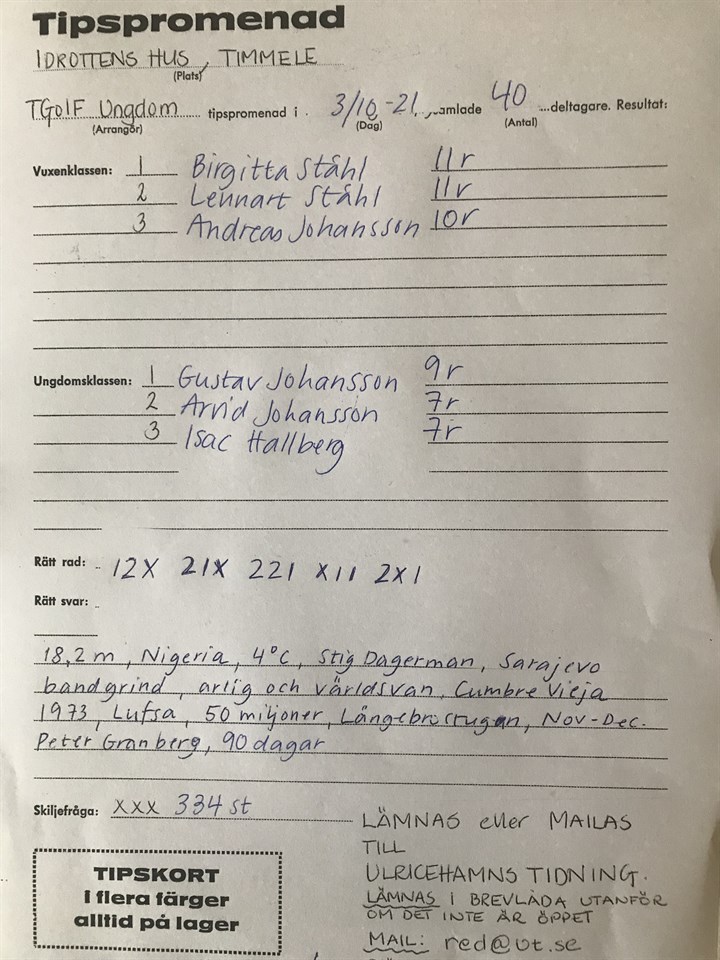 Tipspromenad
IDROTTENS HUS, TIMMELE
(Plats)
TGOIF Ungdom tipspromenad i 3/10 -21, samlade 40 deltagare. Resultat:
(Arrangör) (Dag) (Antal)
Vuxenklassen: 1 Birgitta Ståhl 11r
2 Lennart Ståhl 11r
3 Andreas Johansson 10r
Ungdomsklassen: 1 Gustav Johansson 9r
2 Arvid Johansson 7r
3 Isac Hallberg 7r
Rätt rad: 12X 21X 221 X11 2X1
Rätt svar:
18,2 m, Nigeria, 4°C, Stig Dagerman, Sarajevo
bandgrind, artig och världsvan, Cumbre Vieja
1973, Lufsa, 50 miljoner, Långebrostugan, Nov-Dec.
Peter Granberg, 90 dagar
Skiljefråga: XXX 334 st
LÄMNAS eller MAILAS
TILL
ULRICEHAMNS TIDNING.
LÄMNAS I BREVLÅDA UTANFÖR
OM DET INTE ÄR ÖPPET
MAIL: red@ut.se
TIPSKORT
i flera färger
alltid på lager